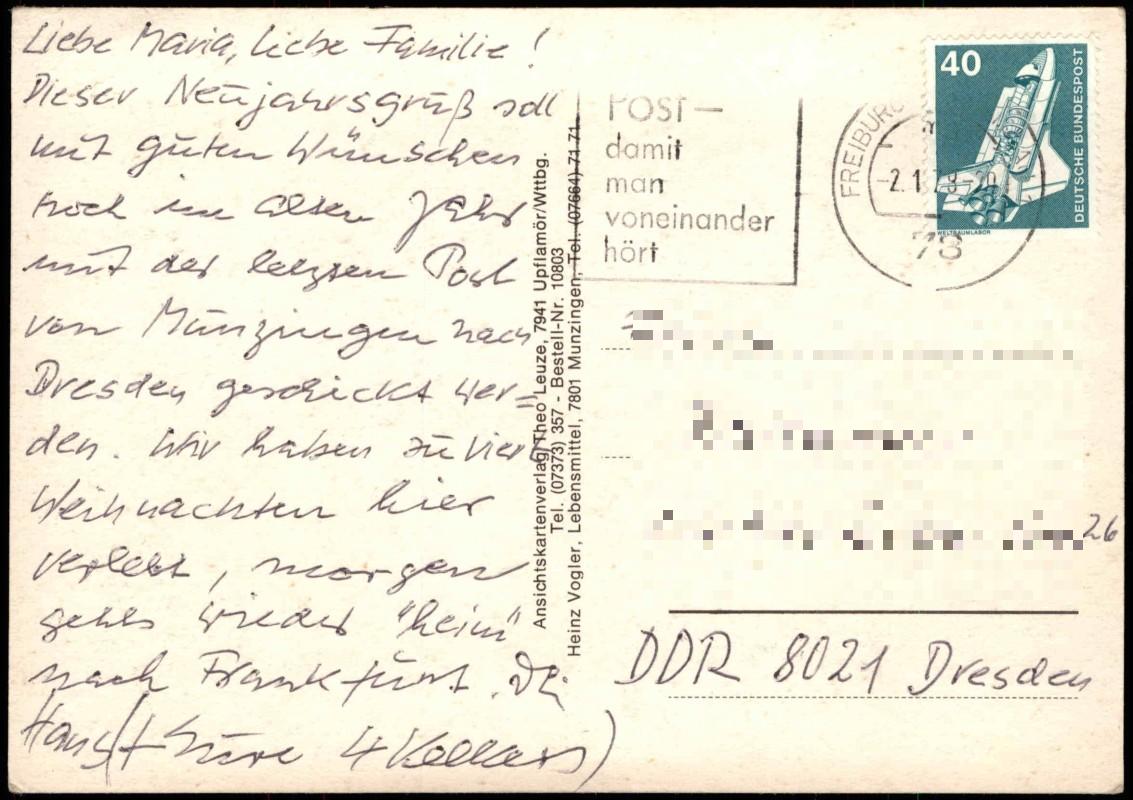 Liebe Maria, liebe Familie!
Dieser Neujahrsgruß soll
mit guten Wünschen
noch im alten Jahr
mit der letzten Post
von Munzingen nach
Dresden geschickt wer=
den. Wir haben zu viert
Weihnachten hier
verlebt, morgen
gehts wieder "heim"
nach Frankfurt.
Hans (+ Eure 4 Kollers)
Ansichtskartenverlag Theo Leuze, 7941 Upflamör/Wttbg.
Tel. (07373) 357 - Bestell-Nr. 10803
Heinz Vogler, Lebensmittel, 7801 Munzingen, Tel. (07664) 71 71
POST —
damit
man
voneinander
hört
FREIBURG
78
40
DEUTSCHE BUNDESPOST
WELTRAUMLABOR
26
DDR 8021 Dresden